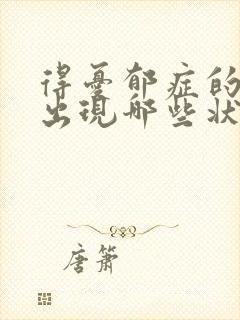 得憂郁症的
出現哪些狀
唐箫